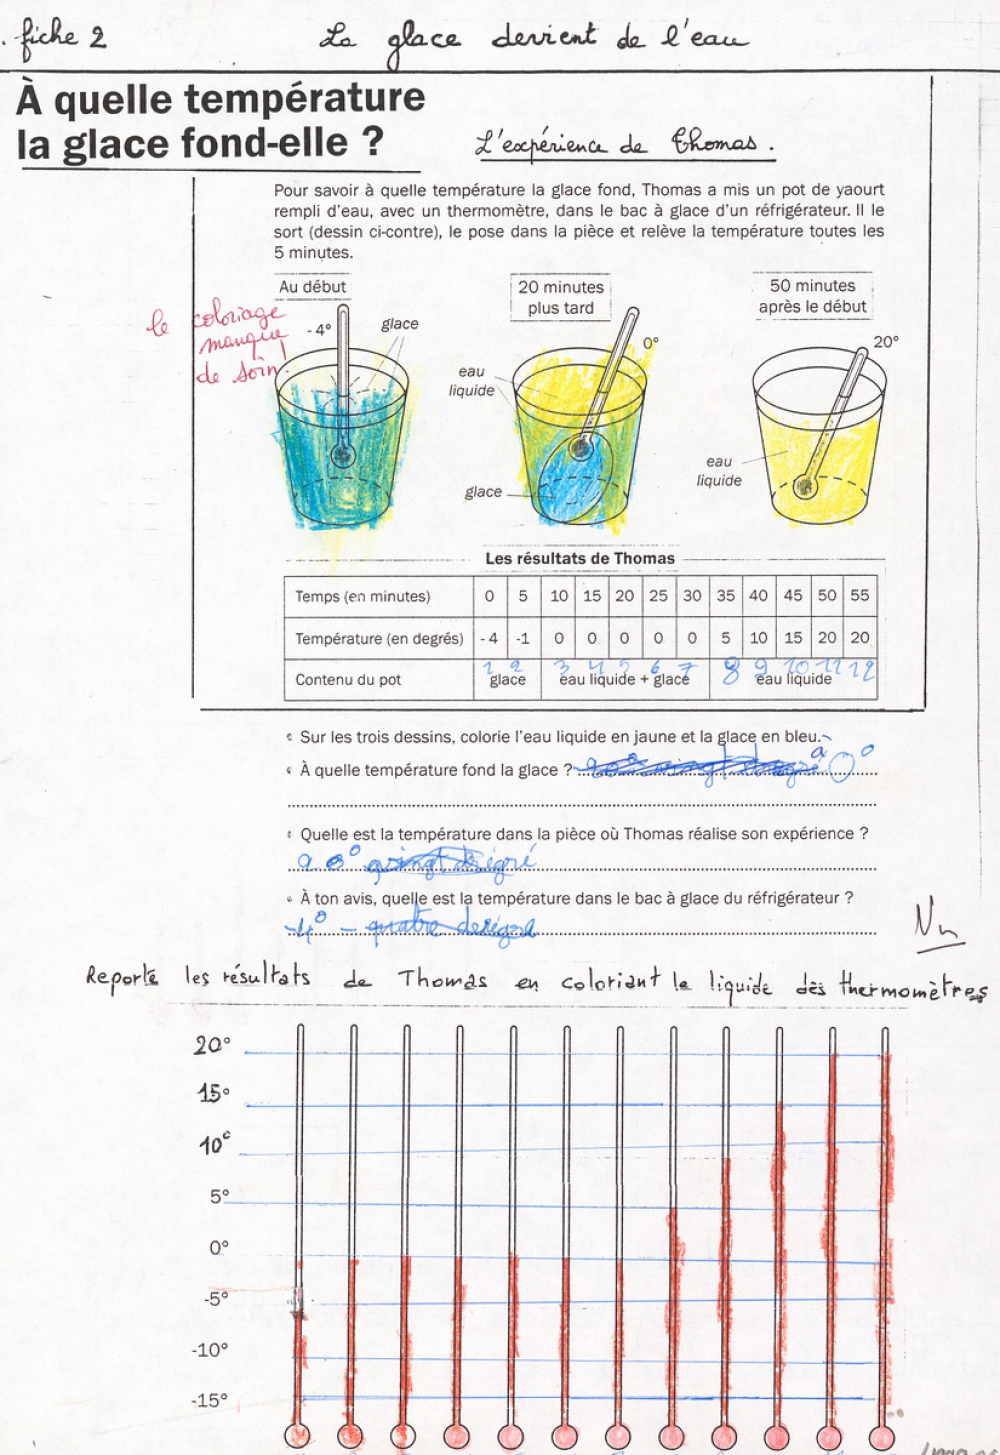 . fiche 2
La glace devient de l'eau
À quelle température
la glace fond-elle ?
L'expérience de Thomas.
Pour savoir à quelle température la glace fond, Thomas a mis un pot de yaourt
rempli d'eau, avec un thermomètre, dans le bac à glace d'un réfrigérateur. Il le
sort (dessin ci-contre), le pose dans la pièce et relève la température toutes les
5 minutes.
le coloriage
manque
de soin !
Au début
- 4°
glace
20 minutes
plus tard
0°
eau
liquide
glace
50 minutes
après le début
20°
eau
liquide
Les résultats de Thomas
Temps (en minutes) 0 5 10 15 20 25 30 35 40 45 50 55
Température (en degrés) - 4 -1 0 0 0 0 0 5 10 15 20 20
1 2 3 4 5 6 7 8 9 10 11 12
Contenu du pot glace eau liquide + glace eau liquide
Sur les trois dessins, colorie l'eau liquide en jaune et la glace en bleu.
À quelle température fond la glace ? 0°
Quelle est la température dans la pièce où Thomas réalise son expérience ?
À ton avis, quelle est la température dans le bac à glace du réfrigérateur ?
-4° - quatre
Vu
Reporte les résultats de Thomas en coloriant le liquide des thermomètres
20°
15°
10°
5°
0°
-5°
-10°
-15°